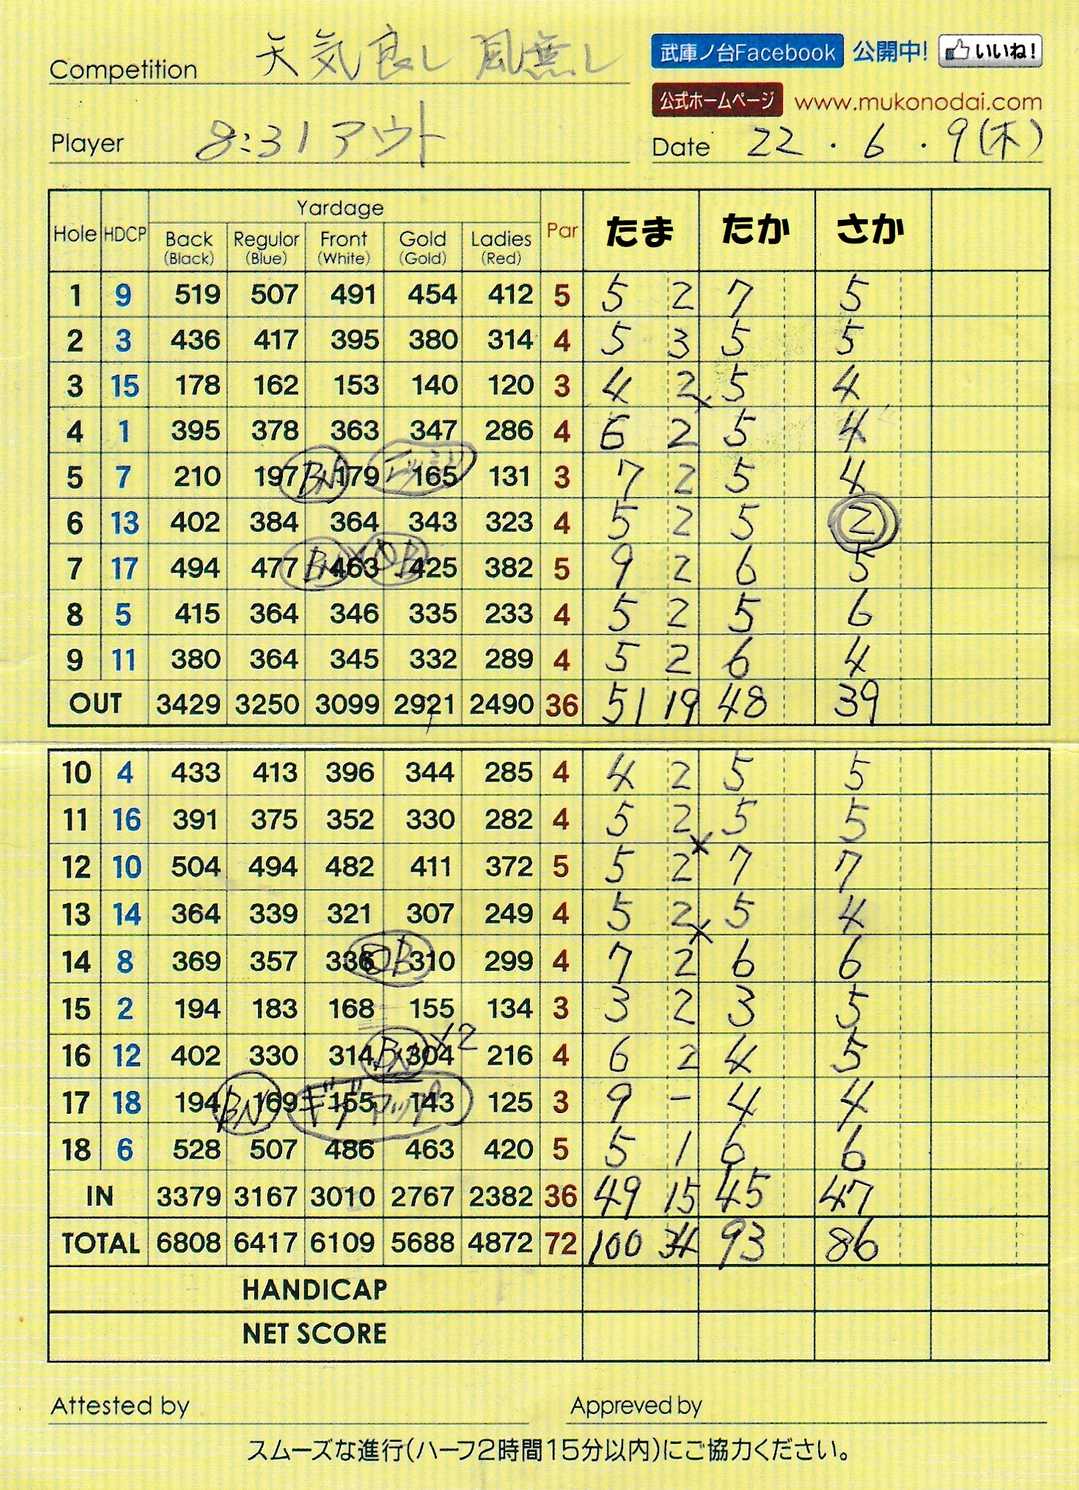 Competition 天気良し 風無し
武庫ノ台Facebook 公開中! いいね!
公式ホームページ www.mukonodai.com
Player 8:31アウト
Date 22.6.9(木)
Hole HDCP Yardage Par たま たか さか
Back (Black) Regulor (Blue) Front (White) Gold (Gold) Ladies (Red)
1 9 519 507 491 454 412 5 5 2 7 5
2 3 436 417 395 380 314 4 5 3 5 5
3 15 178 162 153 140 120 3 4 2 5 4
4 1 395 378 363 347 286 4 6 2 5 4
5 7 210 197 BN 179 165 131 3 7 2 5 4
6 13 402 384 364 343 323 4 5 2 5 2
7 17 494 477 BN 463 OB 425 382 5 9 2 6 5
8 5 415 364 346 335 233 4 5 2 5 6
9 11 380 364 345 332 289 4 5 2 6 4
OUT 3429 3250 3099 2921 2490 36 51 19 48 39
10 4 433 413 396 344 285 4 4 2 5 5
11 16 391 375 352 330 282 4 5 2 5 5
12 10 504 494 482 411 372 5 5 2 7 7
13 14 364 339 321 307 249 4 5 2 5 4
14 8 369 357 336 OB 310 299 4 7 2 6 6
15 2 194 183 168 155 134 3 3 2 3 5
16 12 402 330 314 BN 304 ×2 216 4 6 2 4 5
17 18 194 BN 169 155 ギブアップ 143 125 3 9 - 4 4
18 6 528 507 486 463 420 5 5 1 6 6
IN 3379 3167 3010 2767 2382 36 49 15 45 47
TOTAL 6808 6417 6109 5688 4872 72 100 34 93 86
HANDICAP
NET SCORE
Attested by
Appreved by
スムーズな進行(ハーフ2時間15分以内)にご協力ください。